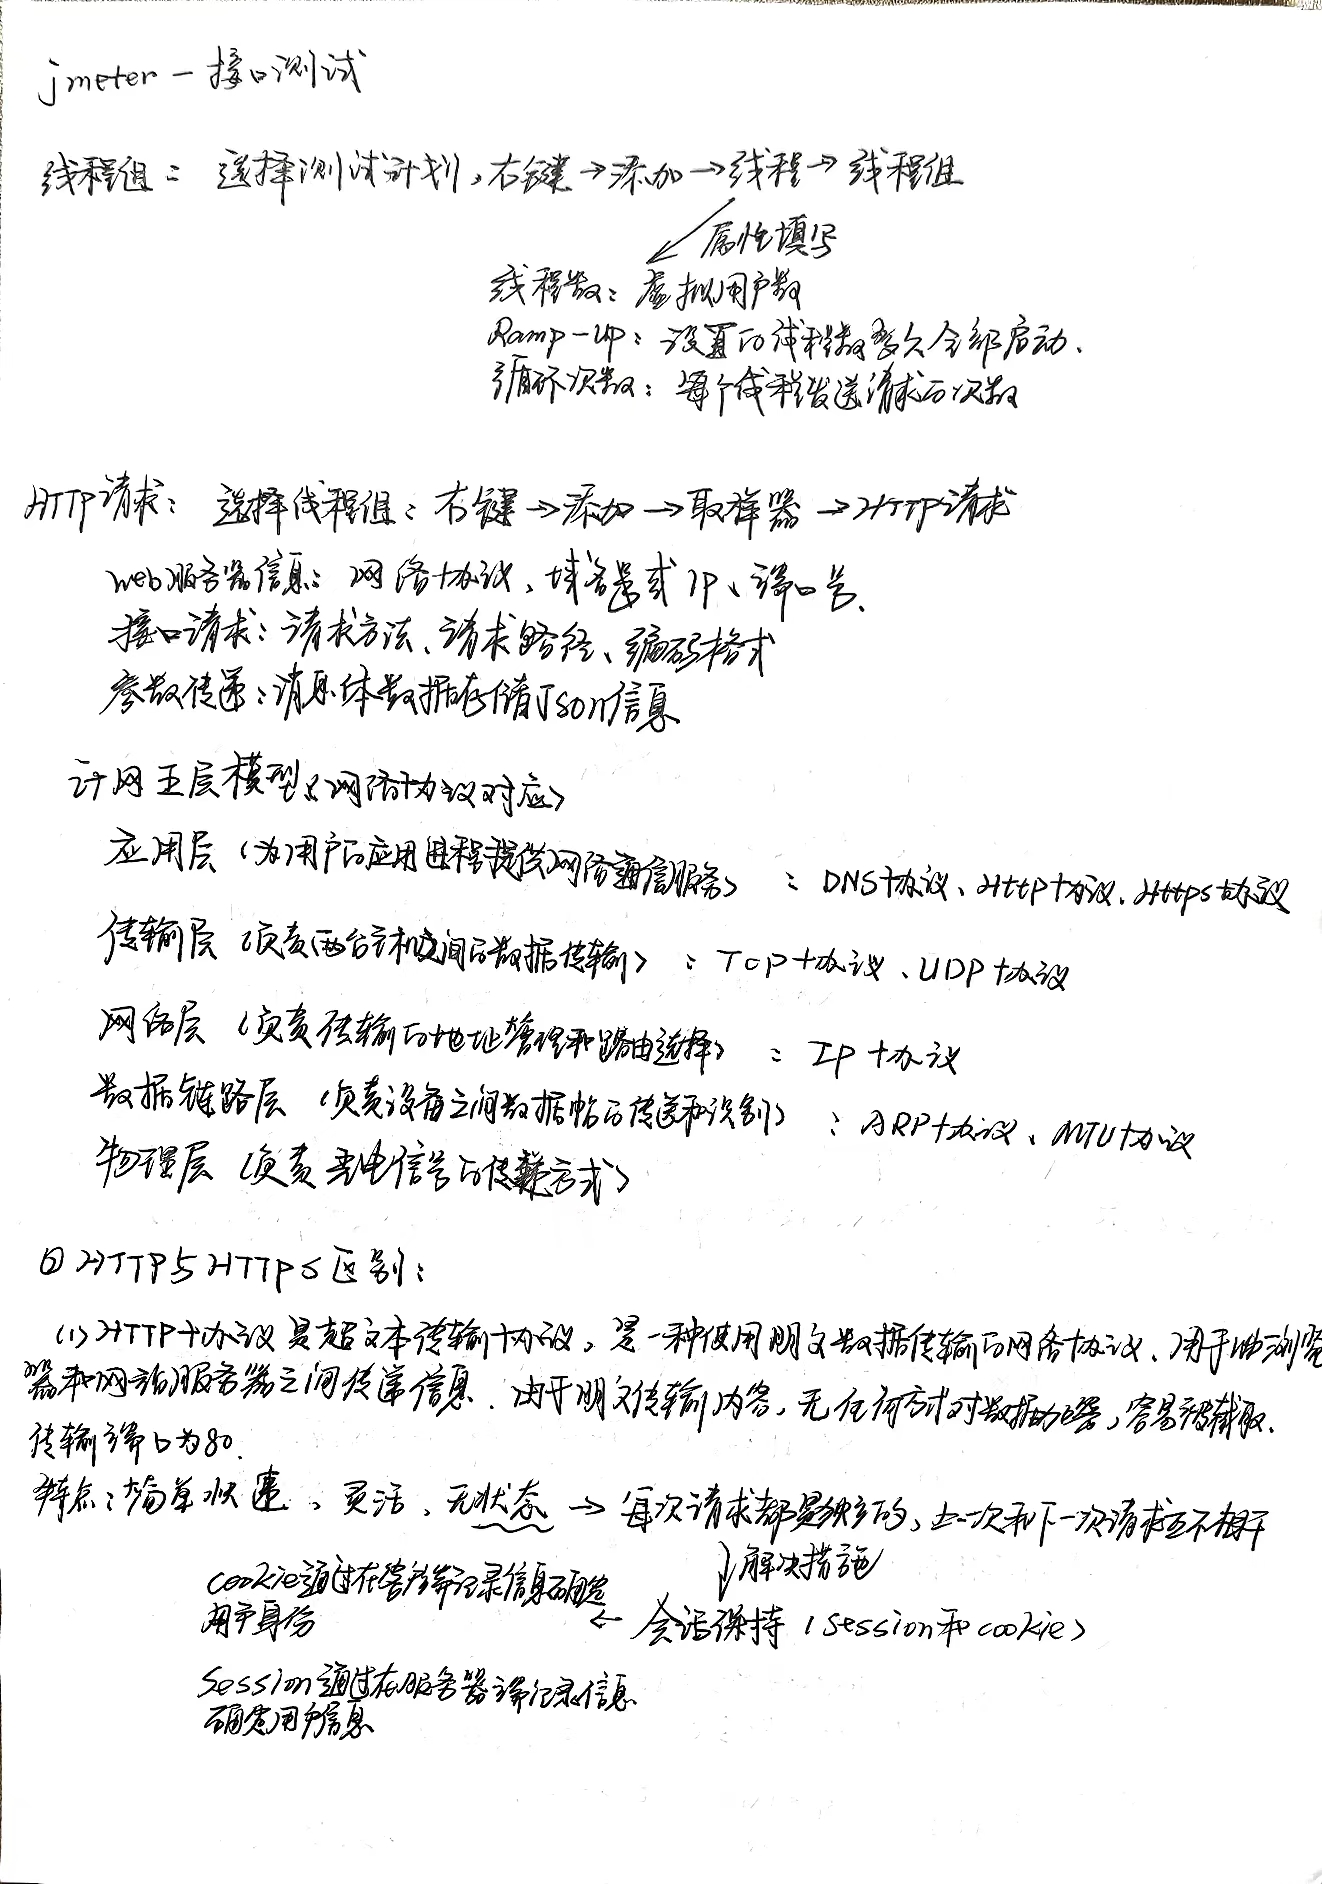 jmeter — 接口测试
线程组： 选择测试计划，右键→添加→线程→线程组
属性填写
线程数：虚拟用户数
Ramp-up：设置的线程数多久全部启动.
循环次数：每个线程发送请求的次数
HTTP请求： 选择线程组：右键→添加→取样器→HTTP请求
web服务器信息：网络协议、域名或IP、端口号.
接口请求：请求方法、请求路径、编码格式
参数传递：消息体数据存储Json信息
计网五层模型（网络协议对应）
应用层（为用户的应用进程提供网络通信服务）：DNS协议、Http协议、Https协议
传输层（负责两台主机之间的数据传输）：TCP协议、UDP协议
网络层（负责传输的地址管理和路由选择）：IP协议
数据链路层（负责设备之间数据帧的传送和识别）：ARP协议、MTU协议
物理层（负责光电信号的传递方式）
① HTTP与HTTPS区别：
(1) HTTP协议是超文本传输协议，是一种使用明文数据传输的网络协议、用于由浏览
器和网站服务器之间传递信息. 由于明文传输内容，无任何方式对数据加密，容易被截取.
传输端口为80.
特点：简单快速、灵活、无状态→每次请求都是独立的，上一次和下一次请求互不相干
解决措施
会话保持（session和cookie）
cookie通过在客户端记录信息确定
用户身份
Session通过在服务器端记录信息
确定用户信息